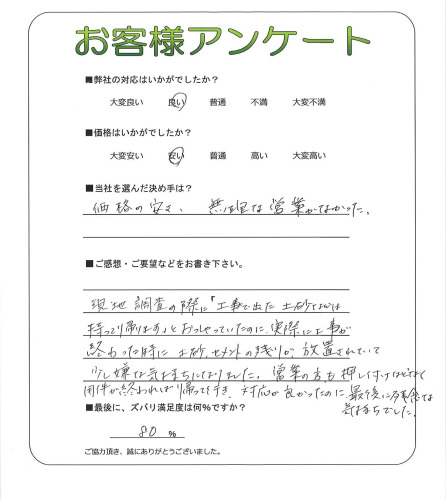 お客様アンケート
■弊社の対応はいかがでしたか?
大変良い 良い 普通 不満 大変不満
■価格はいかがでしたか?
大変安い 安い 普通 高い 大変高い
■当社を選んだ決め手は?
価格の安さ、無理な営業がなかった。
■ご感想・ご要望などをお書き下さい。
現地調査の際に「工事で出た土砂などは
持って帰ります」とおっしゃっていたのに、実際に工事が
終わった時に土砂、セメントの残りが放置されていて
少し嫌な気持ちになりました。営業の方も押し付けなどなく
用件が終われば帰って行き、対応が良かったのに、最後に残念な
気持ちでした。
■最後に、ズバリ満足度は何%ですか?
80 %
ご協力頂き、誠にありがとうございました。